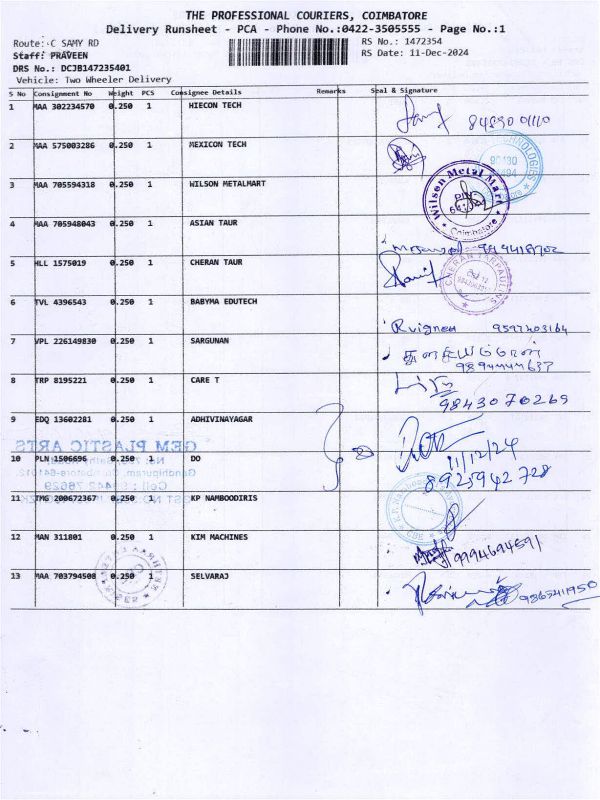 THE PROFESSIONAL COURIERS, COIMBATORE
Delivery Runsheet - PCA - Phone No.:0422-3505555 - Page No.:1
Route: C SAMY RD
RS No.: 1472354
Staff: PRAVEEN
RS Date: 11-Dec-2024
DRS No.: DCJB147235401
Vehicle: Two Wheeler Delivery
S No Consignment No Weight PCS Consignee Details Remarks Seal & Signature
1 MAA 302234570 0.250 1 HIECON TECH
2 MAA 575003286 0.250 1 MEXICON TECH
3 MAA 705594318 0.250 1 WILSON METALMART
Wilson Metal Mart
Coimbatore
4 MAA 705948043 0.250 1 ASIAN TAUR
5 HLL 1575019 0.250 1 CHERAN TAUR
CHERAN TARPAULINS
6 TVL 4396543 0.250 1 BABYMA EDUTECH
Rvignesh 9597403164
7 VPL 226149830 0.250 1 SARGUNAN
8 TRP 8195221 0.250 1 CARE T
9843070269
9 EDQ 13602281 0.250 1 ADHIVINAYAGAR
11/12/24
GEM PLASTIC ARTS
10 PLN 1506696 0.250 1 DO
8925942728
11 IMG 200672367 0.250 1 KP NAMBOODIRIS
12 MAN 311801 0.250 1 KIM MACHINES
9994694591
13 MAA 703794508 0.250 1 SELVARAJ